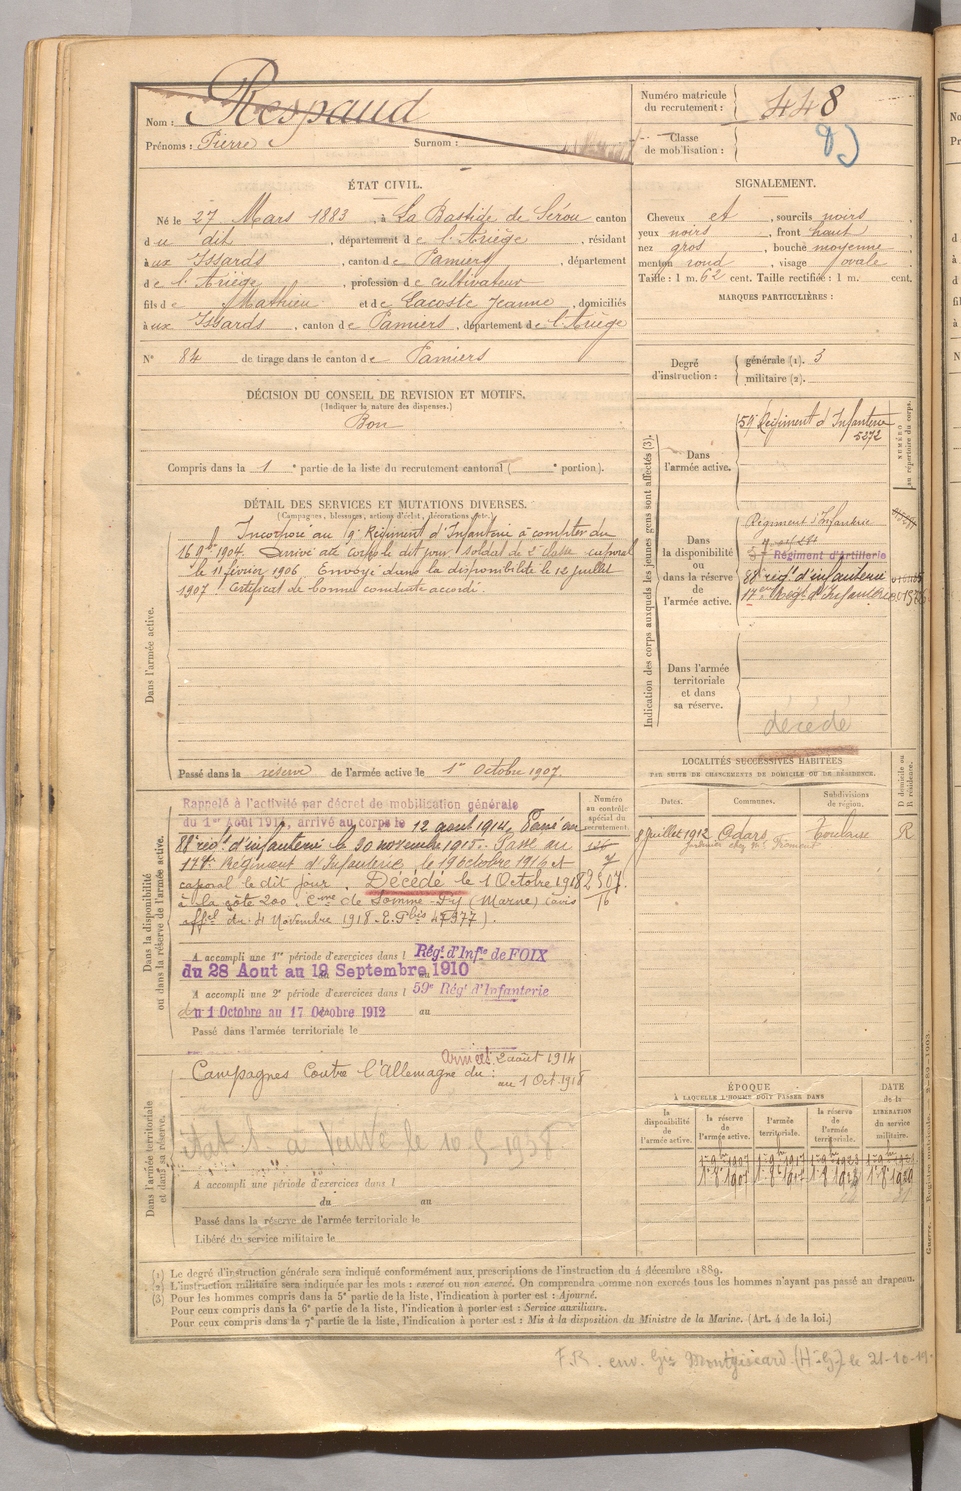 Nom : Respaud
Prénoms : Pierre Surnom :
Numéro matricule du recrutement : 448
Classe de mobilisation :
ÉTAT CIVIL.
Né le 27 Mars 1883, à La Bastide de Sérou canton
du dit, département de l'Ariège, résidant
aux Issards, canton de Pamiers, département
de l'Ariège, profession de cultivateur
fils de Mathieu et de Lacoste Jeanne, domiciliés
aux Issards, canton de Pamiers, département de l'Ariège
N° 84 de tirage dans le canton de Pamiers
SIGNALEMENT.
Cheveux et, sourcils noirs
yeux noirs, front haut
nez gros, bouche moyenne
menton rond, visage ovale
Taille : 1 m. 62 cent. Taille rectifiée : 1 m. cent.
MARQUES PARTICULIÈRES :
Degré d'instruction : générale (1). 3
militaire (2).
DÉCISION DU CONSEIL DE REVISION ET MOTIFS.
(Indiquer la nature des dispenses.)
Bon
Compris dans la 1e partie de la liste du recrutement cantonal ( e portion).
DÉTAIL DES SERVICES ET MUTATIONS DIVERSES.
(Campagnes, blessures, actions d'éclat, décorations, etc.)
Dans l'armée active.
Incorporé au 59e Régiment d'Infanterie à compter du
16 9bre 1904. Arrivé au Corps le dit jour soldat de 2e classe caporal
le 11 février 1906 Envoyé dans la disponibilité le 12 juillet
1907 Certificat de bonne conduite accordé.
Passé dans la réserve de l'armée active le 1er Octobre 1907.
Indication des corps auxquels les jeunes gens sont affectés (3).
NUMÉRO au répertoire du corps.
Dans l'armée active.
59e Régiment d'Infanterie
5272
Dans la disponibilité ou dans la réserve de l'armée active.
Régiment d'Infanterie
Régiment d'Artillerie
88e rég.t d'infanterie
17e Rég.t d'Infanterie
Dans l'armée territoriale et dans sa réserve.
décédé
LOCALITÉS SUCCESSIVES HABITÉES
PAR SUITE DE CHANGEMENTS DE DOMICILE OU DE RÉSIDENCE.
Dates. Communes. Subdivisions de région. D domicile ou R résidence.
8 juillet 1912 Odars Toulouse R
Dans la disponibilité ou dans la réserve de l'armée active.
Numéro au contrôle spécial du recrutement.
Rappelé à l'activité par décret de mobilisation générale
du 1er Août 1914, arrivé au corps le 12 aout 1914. Passé au
88e rég.t d'infanterie le 20 novembre 1915. Passé au
17e Régiment d'Infanterie le 19 octobre 1916 et
caporal le dit jour. Décédé le 1 Octobre 1918
à la côte 200, Cme de Somme-Py (Marne) (avis
offel du 4 Novembre 1918
A accompli une 1re période d'exercices dans l Rég.t d'Inf.ie de FOIX
du 28 Aout au 19 Septembre 1910
A accompli une 2e période d'exercices dans l 59e Rég.t d'Infanterie
du 1 Octobre au 17 Octobre 1912 au
Passé dans l'armée territoriale le
Dans l'armée territoriale et dans sa réserve.
Campagnes Contre l'Allemagne du : 2 août 1914
au 1 Oct. 1918
A accompli une période d'exercices dans l
du au
Passé dans la réserve de l'armée territoriale le
Libéré du service militaire le
ÉPOQUE
À LAQUELLE L'HOMME DOIT PASSER DANS
la disponibilité de l'armée active. la réserve de l'armée active. l'armée territoriale. la réserve de l'armée territoriale.
DATE de la LIBÉRATION du service militaire.
(1) Le degré d'instruction générale sera indiqué conformément aux prescriptions de l'instruction du 4 décembre 1889.
(2) L'instruction militaire sera indiquée par les mots : exercé ou non exercé. On comprendra comme non exercés tous les hommes n'ayant pas passé au drapeau.
(3) Pour les hommes compris dans la 5e partie de la liste, l'indication à porter est : Ajourné.
Pour ceux compris dans la 6e partie de la liste, l'indication à porter est : Service auxiliaire.
Pour ceux compris dans la 7e partie de la liste, l'indication à porter est : Mis à la disposition du Ministre de la Marine. (Art. 4 de la loi.)
F.R. env. Gie Montgiscard (H-G) le 21-10-19